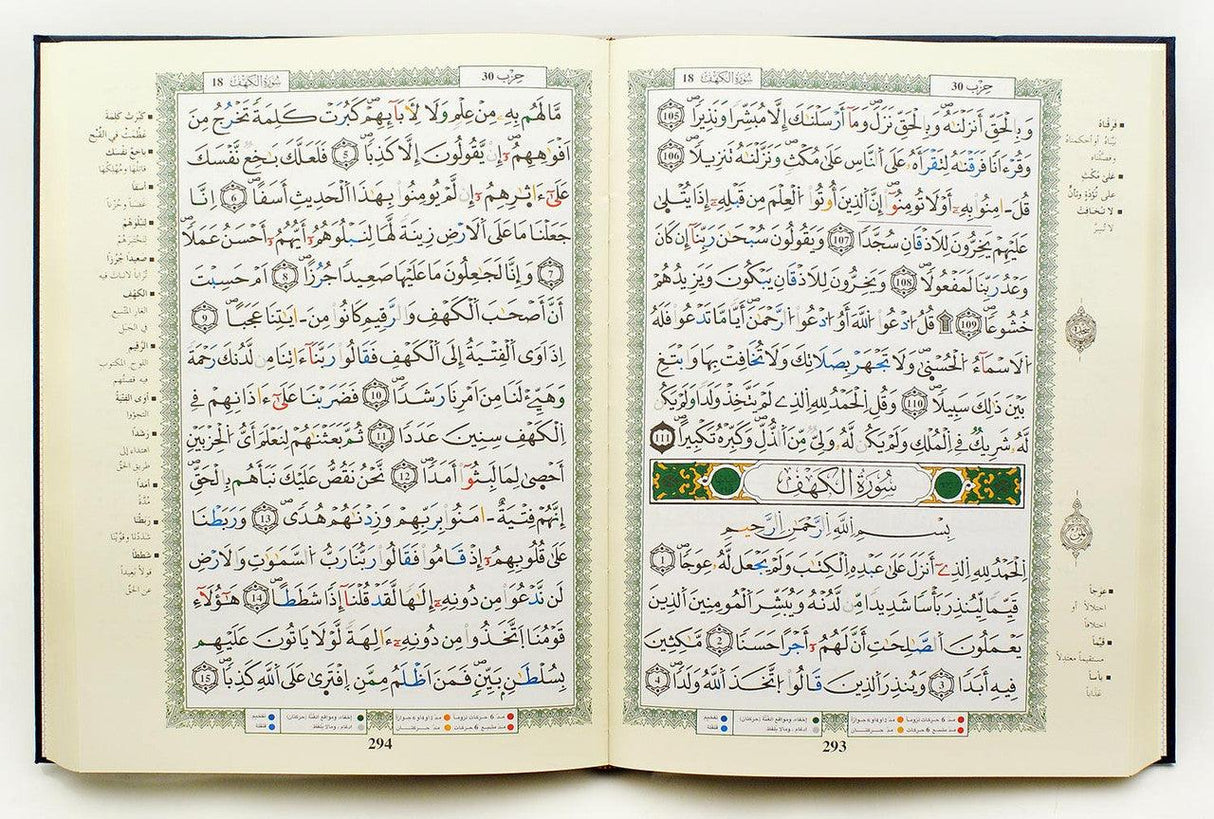 حِزْب 30
سُورَةُ الكَهْف 18
وَبِالْحَقِّ أَنزَلْنَٰهُ وَبِالْحَقِّ نَزَلَ وَمَآ أَرْسَلْنَٰكَ إِلَّا مُبَشِّراً وَنَذِيراً 105
وَقُرْءَاناً فَرَقْنَٰهُ لِتَقْرَأَهُۥ عَلَى النَّاسِ عَلَىٰ مُكْثٍ وَنَزَّلْنَٰهُ تَنزِيلاً 106
قُلَ اٰمِنُوا بِهِۦٓ أَوْ لَا تُومِنُوٓا إِنَّ الَّذِينَ أُوتُوا الْعِلْمَ مِن قَبْلِهِۦٓ إِذَا يُتْلَىٰ
عَلَيْهِمْ يَخِرُّونَ لِلَاذْقَانِ سُجَّداً 107 وَيَقُولُونَ سُبْحَٰنَ رَبِّنَآ إِن كَانَ
وَعْدُ رَبِّنَا لَمَفْعُولاً 108 وَيَخِرُّونَ لِلَاذْقَانِ يَبْكُونَ وَيَزِيدُهُمْ
خُشُوعاً 109 ۩ قُلُ ادْعُوا اللَّهَ أَوُ ادْعُوا الرَّحْمَٰنَ أَيّاً مَّا تَدْعُوا فَلَهُ
الَاسْمَآءُ الْحُسْنَىٰ وَلَا تَجْهَرْ بِصَلَاتِكَ وَلَا تُخَافِتْ بِهَا وَابْتَغِ
بَيْنَ ذَٰلِكَ سَبِيلاً 110 وَقُلِ الْحَمْدُ لِلهِ الذِے لَمْ يَتَّخِذْ وَلَداً وَلَمْ يَكُن
لَّهُۥ شَرِيكٌ فِے الْمُلْكِ وَلَمْ يَكُن لَّهُۥ وَلِيٌّ مِّنَ الذُّلِّ وَكَبِّرْهُ تَكْبِيراً 111
سُورَةُ الكَهْف
بِسْمِ اللَّهِ الرَّحْمَٰنِ الرَّحِيمِ
الْحَمْدُ لِلهِ الذِےٓ أَنزَلَ عَلَىٰ عَبْدِهِ الْكِتَٰبَ وَلَمْ يَجْعَل لَّهُۥ عِوَجاً 1
قَيِّماً لِّيُنذِرَ بَأْساً شَدِيداً مِّن لَّدُنْهُ وَيُبَشِّرَ الْمُومِنِينَ الذِينَ
يَعْمَلُونَ الصَّٰلِحَٰتِ أَنَّ لَهُمُۥٓ أَجْراً حَسَناً 2 مَّٰكِثِينَ
فِيهِ أَبَداً 3 وَيُنذِرَ الذِينَ قَالُوا اتَّخَذَ اللَّهُ وَلَداً 4
فرقناه
بيّناه أو أحكمناه
وفصّلناه
على مُكْثٍ
على تُؤَدَةٍ وتأنّ
لا تُخَافِتْ
لا تُسِرّ
سجدة
ثمن
عوجاً
اختلالاً أو
اختلافاً
قيّماً
مستقيماً معتدلاً
بأساً
عذاباً
مد 6 حركات لزوما
مد 2 أو 4 أو 6 جوازاً
إخفاء، ومواقع الغنّة (حركتان)
تفخيم
مد مشبع 6 حركات
مد حركتان
إدغام، وما لا يلفظ
قلقلة
293
حِزْب 30
سُورَةُ الكَهْف 18
مَّا لَهُم بِهِۦ مِنْ عِلْمٍ وَلَا لِأَبَآئِهِمْ كَبُرَتْ كَلِمَةً تَخْرُجُ مِنَ
اَفْوَٰهِهِمُۥٓ إِن يَّقُولُونَ إِلَّا كَذِباً 5 فَلَعَلَّكَ بَٰخِعٌ نَّفْسَكَ
عَلَىٰٓ ءَاثٰ۪رِهِمُۥٓ إِن لَّمْ يُومِنُوا بِهَٰذَا الْحَدِيثِ أَسَفاً 6 اِنَّا
جَعَلْنَا مَا عَلَى الَارْضِ زِينَةً لَّهَا لِنَبْلُوَهُمُۥٓ أَيُّهُمُۥٓ أَحْسَنُ عَمَلاً
7 وَإِنَّا لَجَٰعِلُونَ مَا عَلَيْهَا صَعِيداً جُرُزاً 8 اَمْ حَسِبْتَ
أَنَّ أَصْحَٰبَ الْكَهْفِ وَالرَّقِيمِ كَانُوا مِنَ اٰيَٰتِنَا عَجَباً 9
اِذَ اَوَى الْفِتْيَةُ إِلَى الْكَهْفِ فَقَالُوا رَبَّنَآ ءَاتِنَا مِن لَّدُنكَ رَحْمَةً
وَهَيِّےءْ لَنَا مِنَ اَمْرِنَا رَشَداً 10 فَضَرَبْنَا عَلَىٰٓ ءَاذَانِهِمْ فِے
الْكَهْفِ سِنِينَ عَدَداً 11 ثُمَّ بَعَثْنَٰهُمْ لِنَعْلَمَ أَيُّ الْحِزْبَيْنِ
أَحْصَىٰ لِمَا لَبِثُوٓا أَمَداً 12 نَّحْنُ نَقُصُّ عَلَيْكَ نَبَأَهُم بِالْحَقِّ
إِنَّهُمْ فِتْيَةٌ اٰمَنُوا بِرَبِّهِمْ وَزِدْنَٰهُمْ هُدًى 13 وَرَبَطْنَا
عَلَىٰ قُلُوبِهِمُۥٓ إِذْ قَامُوا فَقَالُوا رَبُّنَا رَبُّ السَّمَٰوَٰتِ وَالَارْضِ
لَن نَّدْعُوَا مِن دُونِهِۦٓ إِلَٰهاً لَّقَدْ قُلْنَآ إِذاً شَطَطاً 14 هَٰٓؤُلَآءِ
قَوْمُنَا اَتَّخَذُوا مِن دُونِهِۦٓ ءَالِهَةً لَّوْلَا يَاتُونَ عَلَيْهِم
بِسُلْطَٰنٍ بَيِّنٍ فَمَنَ اَظْلَمُ مِمَّنِ اِفْتَرَىٰ عَلَى اللَّهِ كَذِباً 15
كَبُرَتْ كَلِمَةً
عَظُمَتْ في القُبْح
باخعٌ نفسك
قاتلها ومُهلكها
أسفاً
غضباً وحُزناً
لنبلوهم
لنختبرهم
صعيداً جُرُزاً
تراباً لا نبات فيه
الكهف
الغار المتّسع
في الجبل
الرقيم
اللوح المكتوب
فيه قصّتهم
أوى الفتية
التجؤوا
رشداً
اهتداء إلى
طريق الحقّ
أمداً
مُدّةً
ربطنا
شددنا وقوّينا
شططاً
قولاً بعيداً
عن الحقّ
مد 6 حركات لزوما
مد 2 أو 4 أو 6 جوازاً
إخفاء، ومواقع الغنّة (حركتان)
تفخيم
مد مشبع 6 حركات
مد حركتان
إدغام، وما لا يلفظ
قلقلة
294